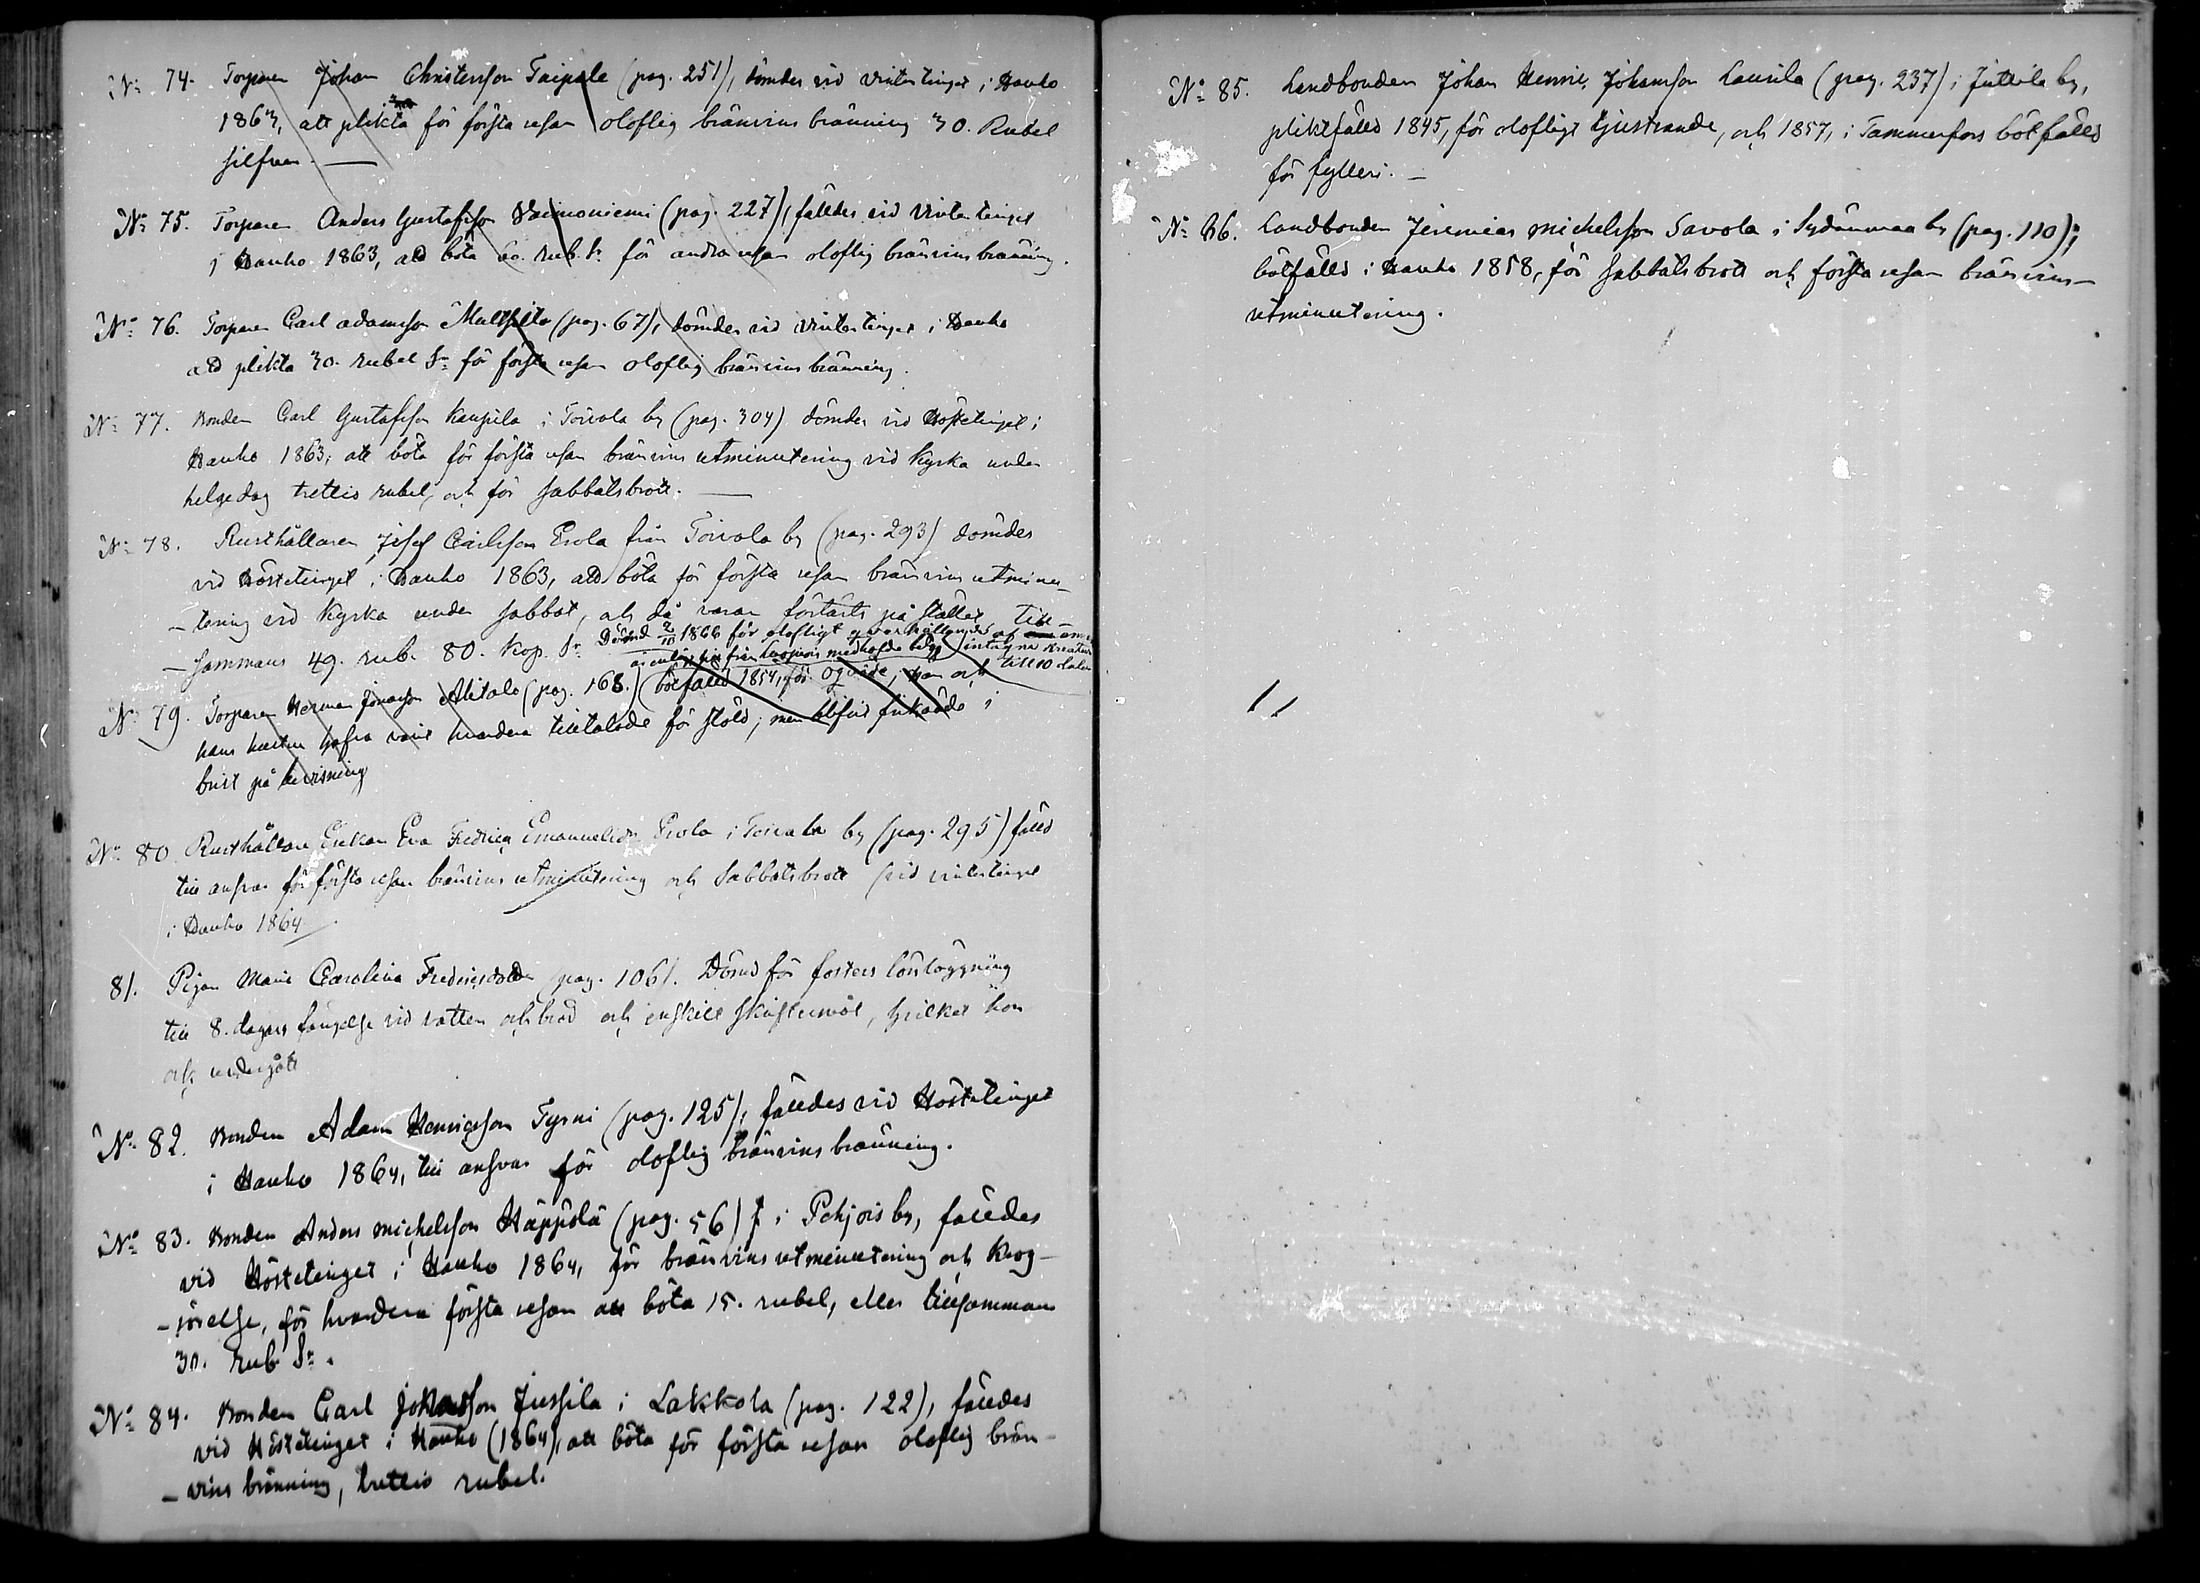 No 74. Torparen Johan Christersson Taipale (pag. 251), dömdes vid vintertinget i Hauho
1863, att plikta för första resan oloflig bränvins bränning 30. Rubel
silfver. —
No 75. Torparen Anders Gustafsson Vaimoniemi (pag. 227), fälldes vid vintertinget
i Hauho 1863, att böta 60. rub. Sr för andra resan oloflig bränvins bränning.
No 76. Torparen Carl Adamsson (pag. 67), dömdes vid vintertinget i Hauho
att plikta 30. rubel Sr för första resan oloflig bränvins bränning.
No 77. Bonden Carl Gustafsson Kaupila i Toivola by (pag. 304) dömdes vid Hösttinget i
Hauho 1863, att böta för första resan bränvins utminutering vid kyrka under
helgedag trettio rubel, och för sabbatsbrott. —
No 78. Rusthållaren Josef Carlsson Erola från Toivola by (pag. 293) dömdes
vid Höstetinget i Hauho 1863, att böta för första resan bränvins utminu-
-tering vid kyrka under sabbat, och då varan förtärts på stället till-
-sammans 49. rub. 80. kop. Sr Dömd 1866 för olofligt qvarhållande af intagna kreatur
till 10 daler
No 79. Torparen Herman Jonasson Alitalo (pag. 168.) bötfälld 1854, för oqväde, han och
hans hustru hafva varit hvardera tilltalade för stöld; men blifvit frikände i
brist på bevisning
No 80 Rusthållare Enkan Eva Fredrica Emanuelsdr Erola i Toivola by (pag. 295) fälld
till ansvar för första resan bränvins utminutering och Sabbatsbrott vid vintertinget
i Hauho 1864
81. Pigan Maria Carolina Fredriksdotter pag. 106). Dömd för fosters lönläggning
till 8. dagars fängelse vid vatten och bröd och enskilt skriftermål, hvilket hon
och undergått
No 82. Bonden Adam Henricsson Tyrni (pag. 125), fälldes vid Höstetinget
i Hauho 1864, till ansvar för oloflig bränvins bränning.
No 83. Bonden Anders Michelsson Häppölä (pag. 56) i Pohjois by, fälldes
vid Höstetinget i Hauho 1864, för bränvins utminutering och krog-
-rörelse, för hvardera första resan att böta 15. rubel, eller tillsammans
30. rub Sr.
No 84. Bonden Carl Johansson Jussila i Lakkola (pag. 122), fälldes
vid Höstetinget i Hauho (1864), att böta för första resan oloflig brän-
-vins bränning, trettio rubel.
No 85. Landbonden Johan Henric Johansson Laurila (pag. 237) i Juttila by,
pliktfälld 1845, för olofligt ljustrande, och 1857, i Tammerfors bötfälld
för fylleri. —
No 86. Landbonden Jeremias Michelsson Savola i Sydänmaa by (pag. 110);
bötfälld i Hauho 1858, för sabbatsbrott och första resan bränvins-
utminutering.